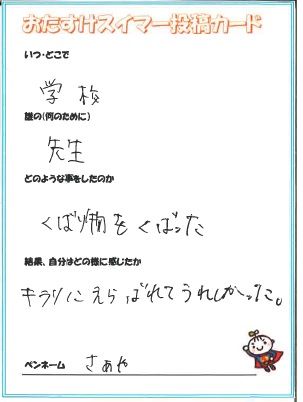 おたすけスイマー投稿カード
いつ・どこで
学校
誰の(何のために)
先生
どのような事をしたのか
くばり物をくばった
結果、自分はどの様に感じたか
キラリにえらばれてうれしかった。
ペンネーム さぁや